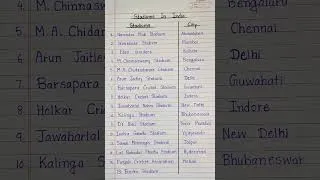 Stadiums In India
Stadiums City
1. Narendra Modi Stadium Ahmedabad
2. Wankhede Stadium Mumbai
3. Eden Gardens Kolkata
4. M. Chinnaswamy Stadium Bengaluru
5. M. A. Chidambaram Stadium Chennai
6. Arun Jaitley Stadium Delhi
7. Barsapara Cricket Stadium Guwahati
8. Holkar Cricket Stadium Indore
9. Jawaharlal Nehru Stadium New Delhi
10. Kalinga Stadium Bhubaneswar
Stadium
Indira Gandhi Stadium
Stadium Jaipur
Stadium Hyderabad
Punjab Cricket Association Mohali
Stadium
4. M. Chinnas
M. A. Chidar
6. Arun Jaitley
Barsapara
8. Holkar Cric
9. Jawaharlal
10. Kalinga S
Bengaluru
Chennai
Delhi
Guwahati
Indore
New Delhi
Bhubaneswar